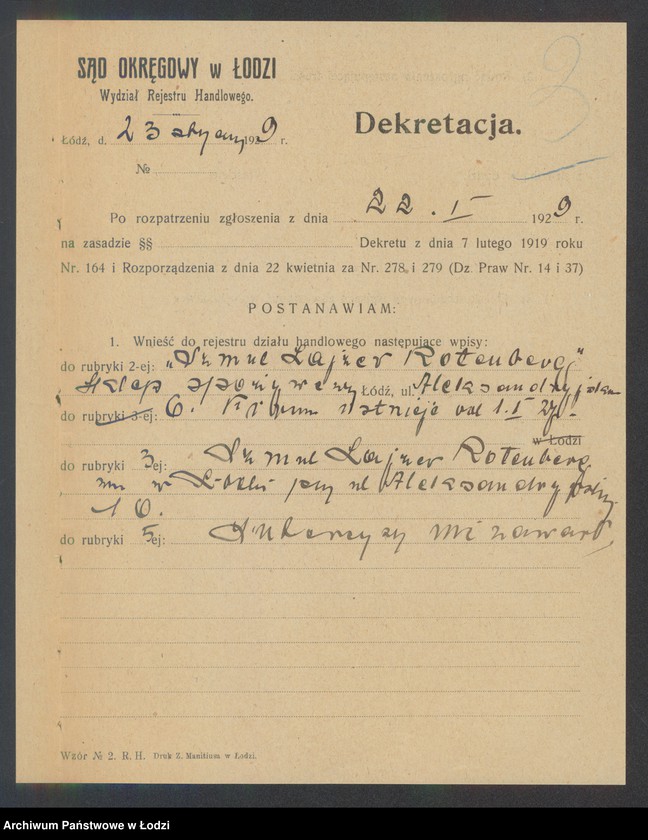 3
SĄD OKRĘGOWY w ŁODZI
Wydział Rejestru Handlowego.
Dekretacja.
Łódź, d. 23 stycznia 1929 r.
№
Po rozpatrzeniu zgłoszenia z dnia 22. I 1929 r.
na zasadzie §§ Dekretu z dnia 7 lutego 1919 roku
Nr. 164 i Rozporządzenia z dnia 22 kwietnia za Nr. 278 i 279 (Dz. Praw Nr. 14 i 37)
POSTANAWIAM:
1. Wnieść do rejestru działu handlowego następujące wpisy:
do rubryki 2-ej: „Szmul Lajzer Rotenberg"
Sklep spożywczy Łódź, ul. Aleksandryjska
do rubryki 3-ej: 6. Firma istnieje od 1.I 27 r.
w Łodzi
do rubryki 3ej: Szmul Lajzer Rotenberg
zm w Łodzi przy ul Aleksandryjskiej
16.
do rubryki 5ej: Intercyzy nie zawarł
Wzór № 2. R. H. Druk Z. Manitius w Łodzi.
Archiwum Państwowe w Łodzi